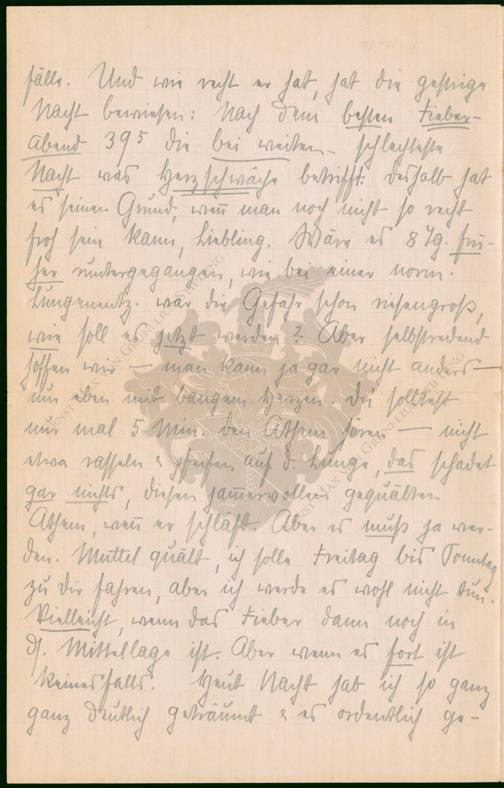 fälle. Und wie recht er hat, hat die gestrige
Nacht bewiesen: nach dem besten Fieber-
Abend 39⁵ die bei weitem schlechteste
Nacht was Herzschwäche betrifft. Deshalb hat
es seinen Grund, weñ man noch nicht so recht
froh sein kann, Liebling. Wäre es 8 Tg. frü-
her runtergegangen, wie bei einer norm.
Lungenentz. war die Gefahr schon riesengroß,
wie soll es jetzt werden? Aber selbstredend
hoffen wir — man kann ja gar nicht anders —
nun eben mit bangem Herzen. Du solltest
nur mal 5 Min. den Athem hören — nicht
etwa rasseln & pfeifen auf d. Lunge, das schadet
gar nichts, diesen jam̃ervollen gequälten
Athem, weñ er schläft. Aber es muß ja wer-
den. Muttel quält, ich solle Freitag bis Sonntag
zu Dir fahren, aber ich werde es wohl nicht tun.
Vielleicht, wenn das Fieber dann noch in
d. Mittellage ist. Aber wenn es fort ist
keinesfalls. Heut Nacht hab ich so ganz
ganz deutlich geträumt & es ordentlich ge-
ERNST MAX VON GRUNELIUS-STIFTUNG
ERNST MAX VON GRUNELIUS-STIFTUNG